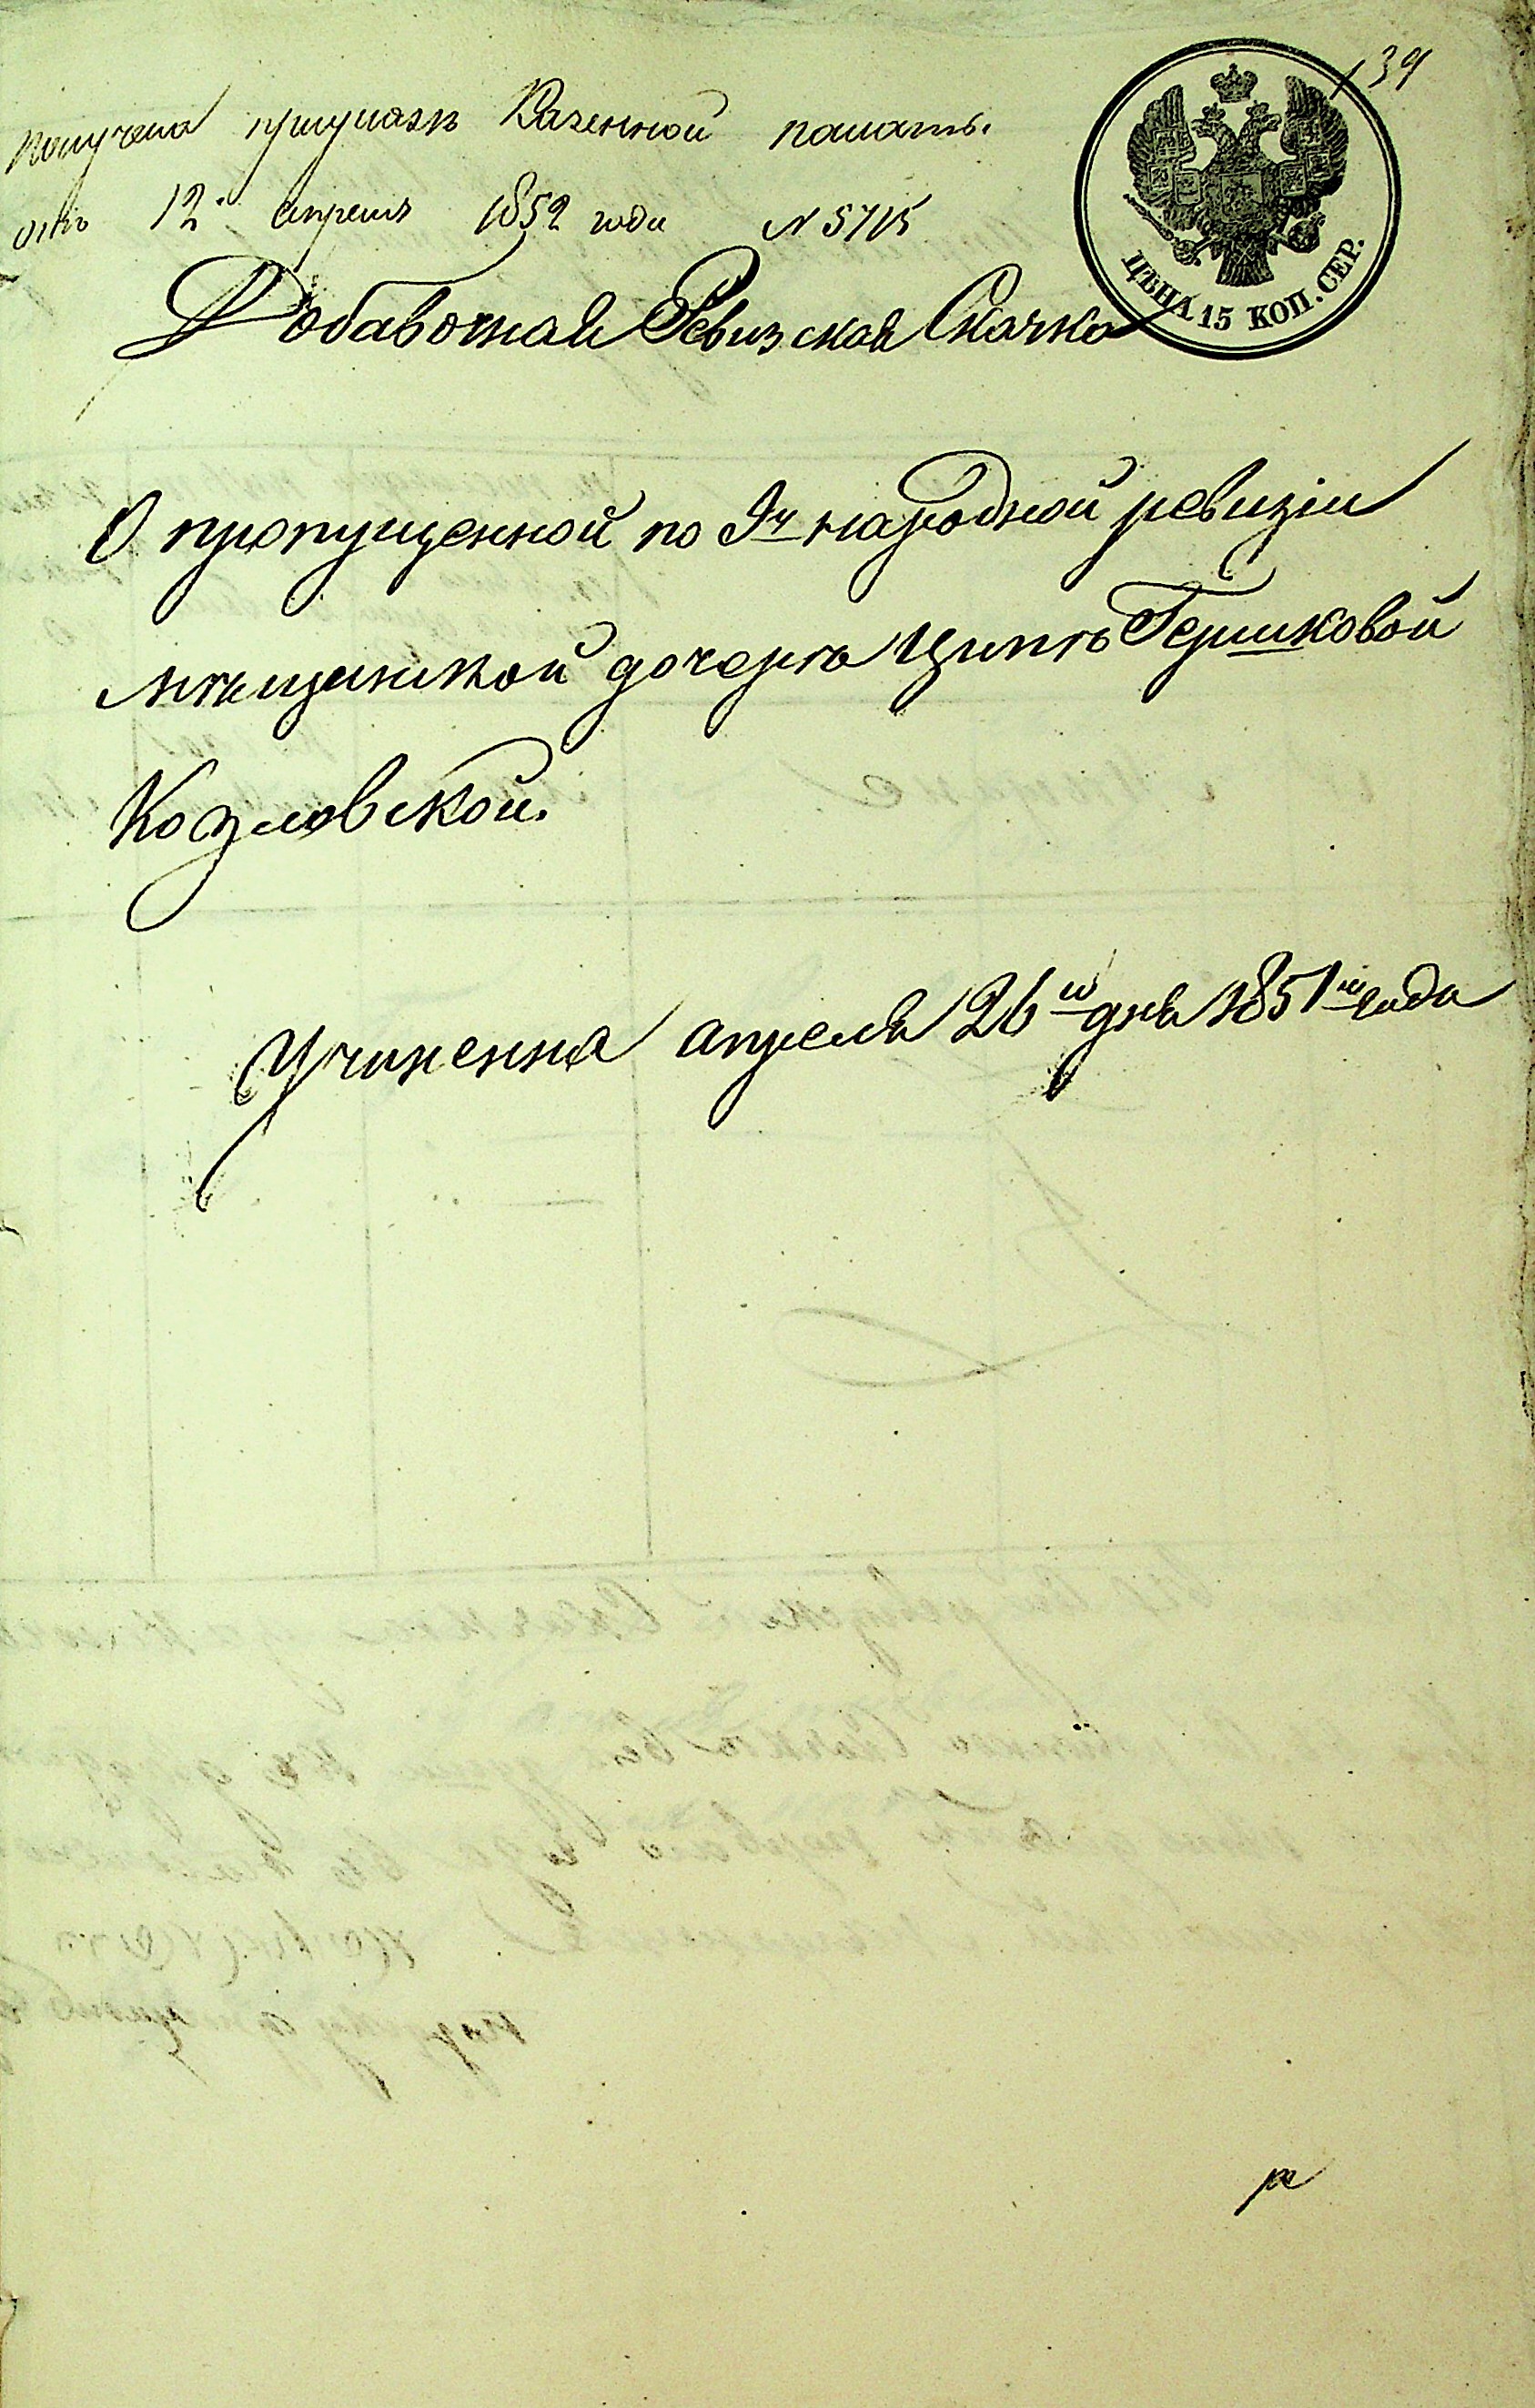 139
получена приуказъ Казенной палаты.
отъ 12 апреля 1852 года N 5715
ЦѢНА 15 КОП. СЕР.
Добавочная Ревизская Скачка
О пропущенной по 9й народной ревизіи
мѣщанской дочерѣ Ципѣ Гершковой
Козловской.
Учиненна апреля 26го дня 1851го года